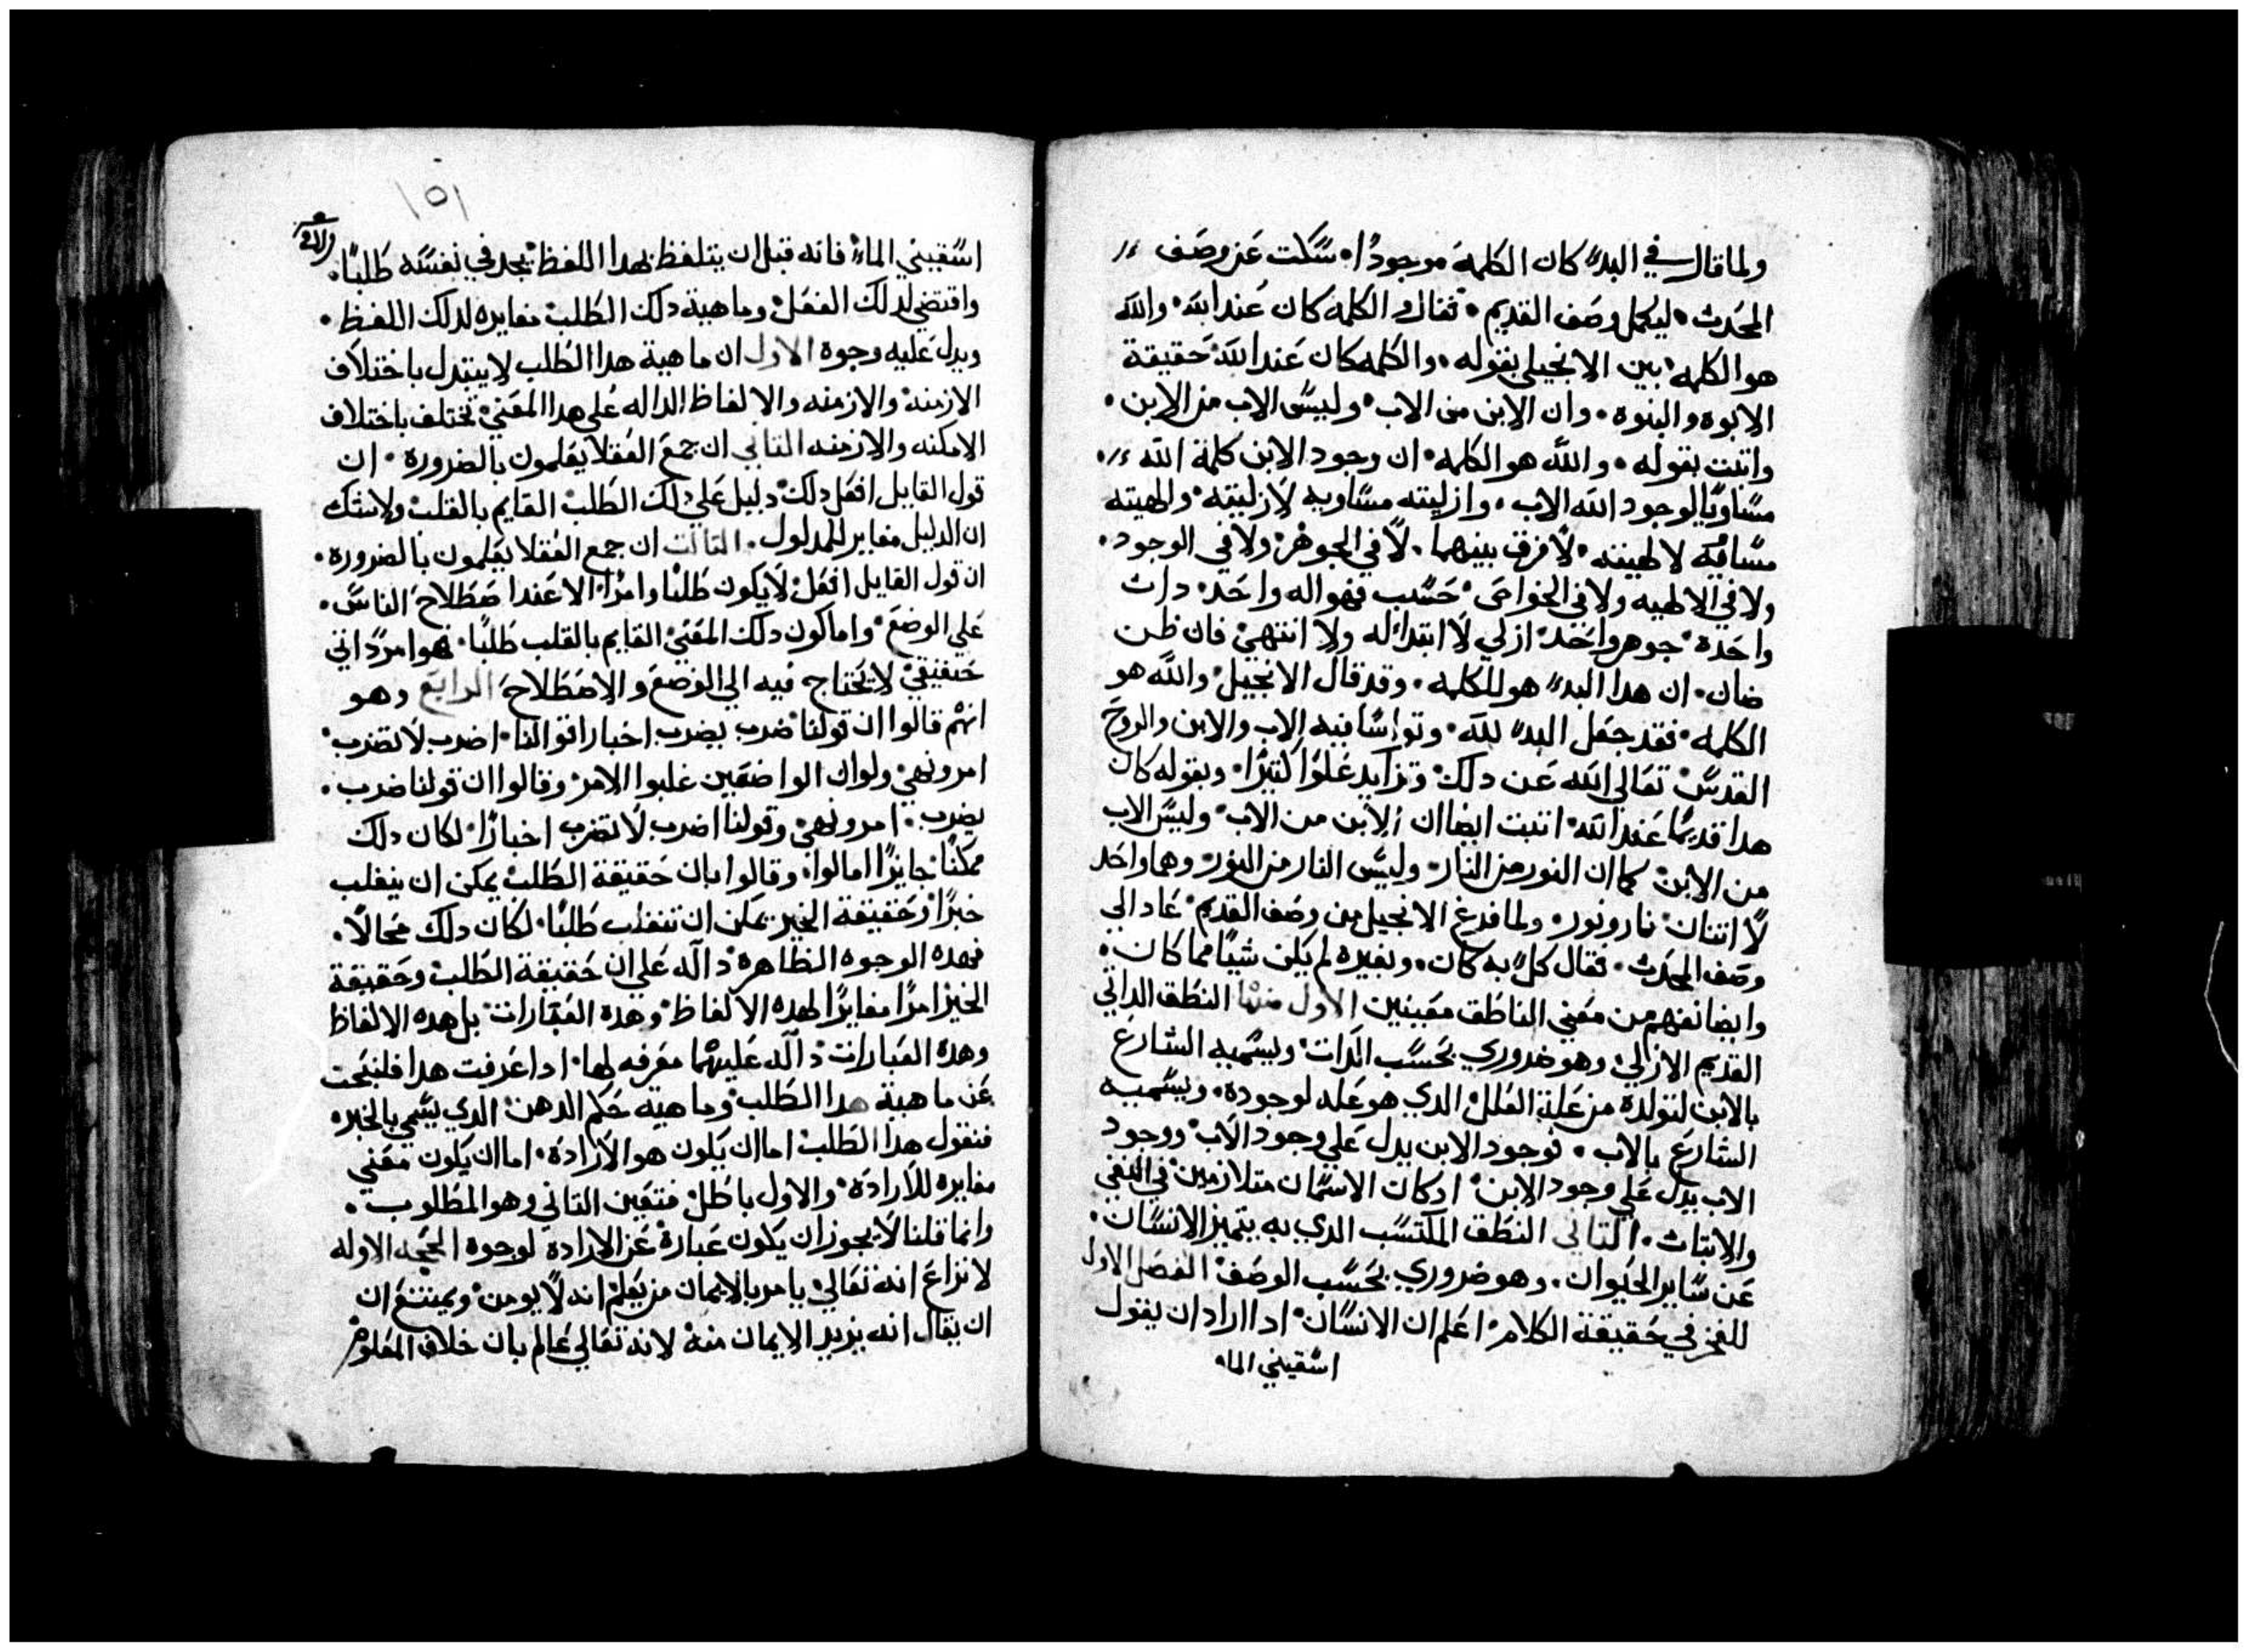 ولما قال في البدء كان الكلمة موجودًا • سكت عن وصف
المحدث • ليكمل وصف القديم • فقال والكلمه كان عند الله • والله
هو الكلمه • بين الانجيلي بقوله • والكلمه كان عند الله حقيقة
الابوه والبنوه • وان الابن من الاب • وليس الاب من الابن •
واتبت بقوله • والله هو الكلمه • ان وجود الابن كلمة الله
مساويًا لوجود الله الاب • وازليته مساويه لازليته • والهيته
لالهيته • لا فرق بينهما • لا في الجوهر • ولا في الوجود •
ولا في الالهيه ولا في الخواص • حسب فهو اله واحد • دات
واحدة • جوهر واحد • ازلي لا ابتداء له ولا انتهى • فان ظن
ضان • ان هدا البدء هو للكلمه • وقد قال الانجيل • والله هو
الكلمه • فقد جعل البدء لله • فيه الاب والابن والروح
القدس • تعالى الله عن دلك • وتزايد علوًا كتيرًا • وبقوله كان
هدا قديمًا عند الله • اتبت ايضا ان الابن من الاب • وليس الاب
من الابن • كما ان النور من النار • وليس النار من النور • وهما واحد
لا اتنان • نار ونور • ولما فرغ الانجيل من وصف القديم • عاد الي
وصف المحدث • فقال كل به كان • وبغيره لم يكن شيًا مما كان •
وايضا نفهم من معني الناطق معنيين الاول منها النطق الداتي
القديم الازلي • وهو ضروري بحسب الدات • ويسميه الشارع
بالابن لتولده من علة العلل الدي هو عله لوجوده • ويسميه
الشارع بالاب • فوجود الابن يدل علي وجود الاب • ووجود
الاب يدل علي وجود الابن • اد كان الاسمان متلازمين في النفي
والاتبات • التاني النطق المكتسب الدي به يتميز الانسان •
عن ساير الحيوان • وهو ضروري بحسب الوصف • الفصل الاول
للفخر في حقيقة الكلام • اعلم ان الانسان • ادا اراد ان يقول
اسقيني الماء
١٥١
اسقيني الماء • فانه قبل ان يتلفظ بهدا اللفظ • يجد في نفسه طلبًا •
واقتضي لدلك الفعل • وماهية دلك الطلب • مغايره لدلك اللفظ •
ويدل عليه وجوه الاول ان ماهية هدا الطلب لا يتبدل باختلاف
الازمنه • والازمنه والالفاظ الداله علي هدا المعني • تختلف باختلاف
الامكنه والازمنه التاني ان جمع العقلا يعلمون بالضروره • ان
قول القايل افعل دلك • دليل علي دلك الطلب القايم بالقلب • ولا شك
ان الدليل مغاير للمدلول • التالت ان جمع العقلا يعلمون بالضروره •
ان قول القايل افعل • لا يكون طلبًا وامرًا • الا عند اصطلاح الناس •
علي الوضع • واما كون دلك المعني القايم بالقلب طلبًا • فهو امر داتي
حقيقي • لا يحتاج فيه الي الوضع والاصطلاح الرابع وهو
انهم قالوا ان قولنا ضرب يضرب اخبارا • اضرب لا تضرب •
امر ونهي • ولو ان الواضعين غلبوا الامر • وقالوا ان قولنا ضرب •
يضرب • امر ونهي • وقولنا اضرب لا تضرب اخبارًا • لكان دلك
ممكنًا جايزًا اما لوا • وقالوا بان حقيقة الطلب • يمكن ان ينقلب
خبرًا • وحقيقة الخبر يمكن ان تنقلب طلبًا • لكان دلك محالًا •
فهده الوجوه الظاهره • داله علي ان حقيقة الطلب • وحقيقة
الخبر امرًا مغايرًا لهده الالفاظ • وهده العبارات • بل هده الالفاظ
وهده العبارات • داله عليهما معرفه لها • ادا عرفت هدا فلنبحت
عن ماهية هدا الطلب • وماهية حكم الدهن • الدي يسمي بالخبر •
فنقول هدا الطلب • اما ان يكون هو الاراده • اما ان يكون معني
مغايره للاراده • والاول باطل • فتعين التاني وهو المطلوب •
وانما قلنا لا يجوز ان يكون عبارة عن الاراده • لوجوه الحجه الاوله
لا نزاع انه تعالي • يامر بالايمان من يعلم انه لا يومن • ويمتنع ان
ان يقال انه يريد الايمان منه • لانه تعالي عالم بان خلاف المعلوم